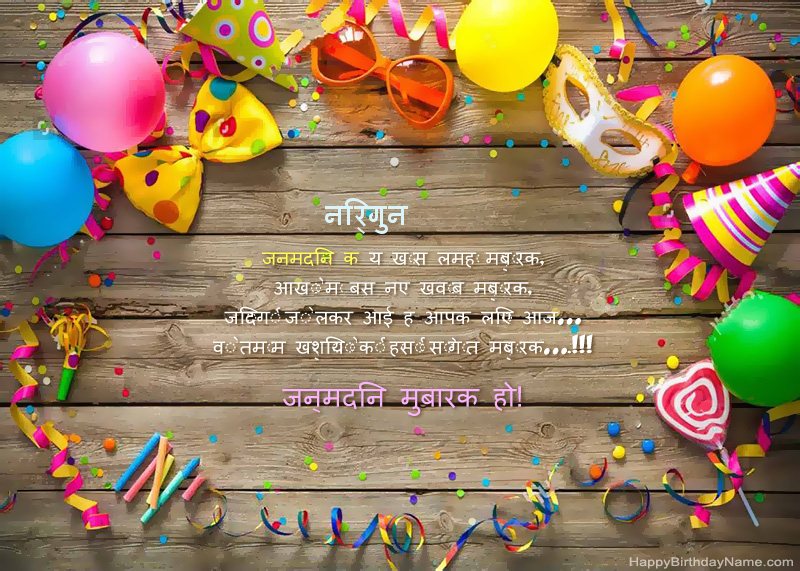 निर्गुन
जनमदिन क य खास लमह मबारक,
आखों म बस नए ख्वाब मबारक,
जिंदगी जो लेकर आई ह आपक लिए आज...
वो तमाम खुशियों की हसीं सौगात मबारक...!!!
जन्मदिन मुबारक हो!
HappyBirthdayName.com